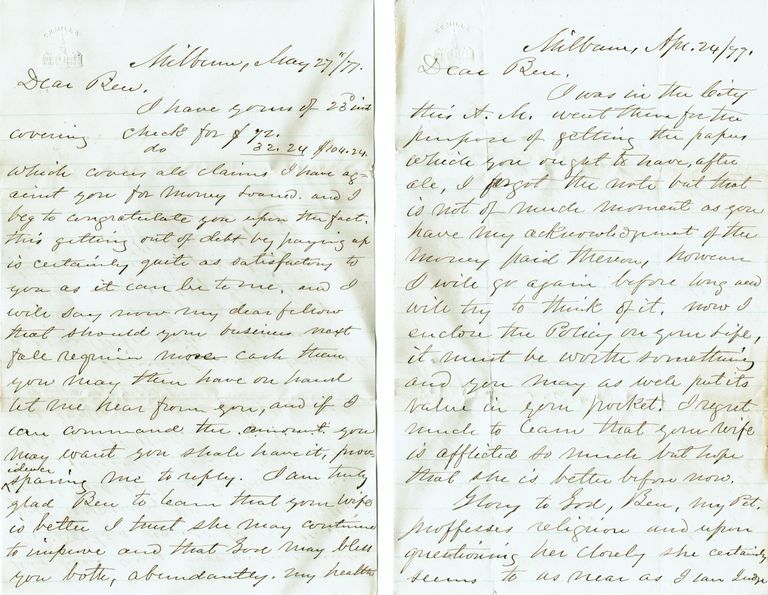 Milburn, May 27"/77.
Dear Ben.
I have yours of 23d inst
covering check for $ 72.
do 32.24 $104.24.
which covers all claims I have ag-
ainst you for money loaned. and I
beg to congratulate you upon the fact.
this getting out of debt by paying up
is certainly quite as satisfactory to
you as it can be to me. and I
will say now my dear fellow
that should your business next
fall require more cash than
you may then have on hand
let me hear from you, and if I
can command the amount you
may want you shall have it, prov-
idence
sparing me to reply. I am truly
glad Ben to learn that your wife
is better I trust she may continue
to improve and that God may bless
you both, abundantly. my health
Milburn, Apr. 24/77.
Dear Ben.
I was in the City
this A. M. went there for the
purpose of getting the papers
which you ought to have, after
all, I forgot the note but that
is not of much moment as you
have my acknowledgment of the
money paid thereon, however
I will go again before long and
will try to think of it. now I
enclose the Policy on your life,
it must be worth something
and you may as well put its
value in your pocket. I regret
much to learn that your wife
is afflicted so much but hope
that she is better before now.
Glory to God, Ben, my
proffesses religion and upon
questioning her closely she certainly
seems to as near as I can Judge